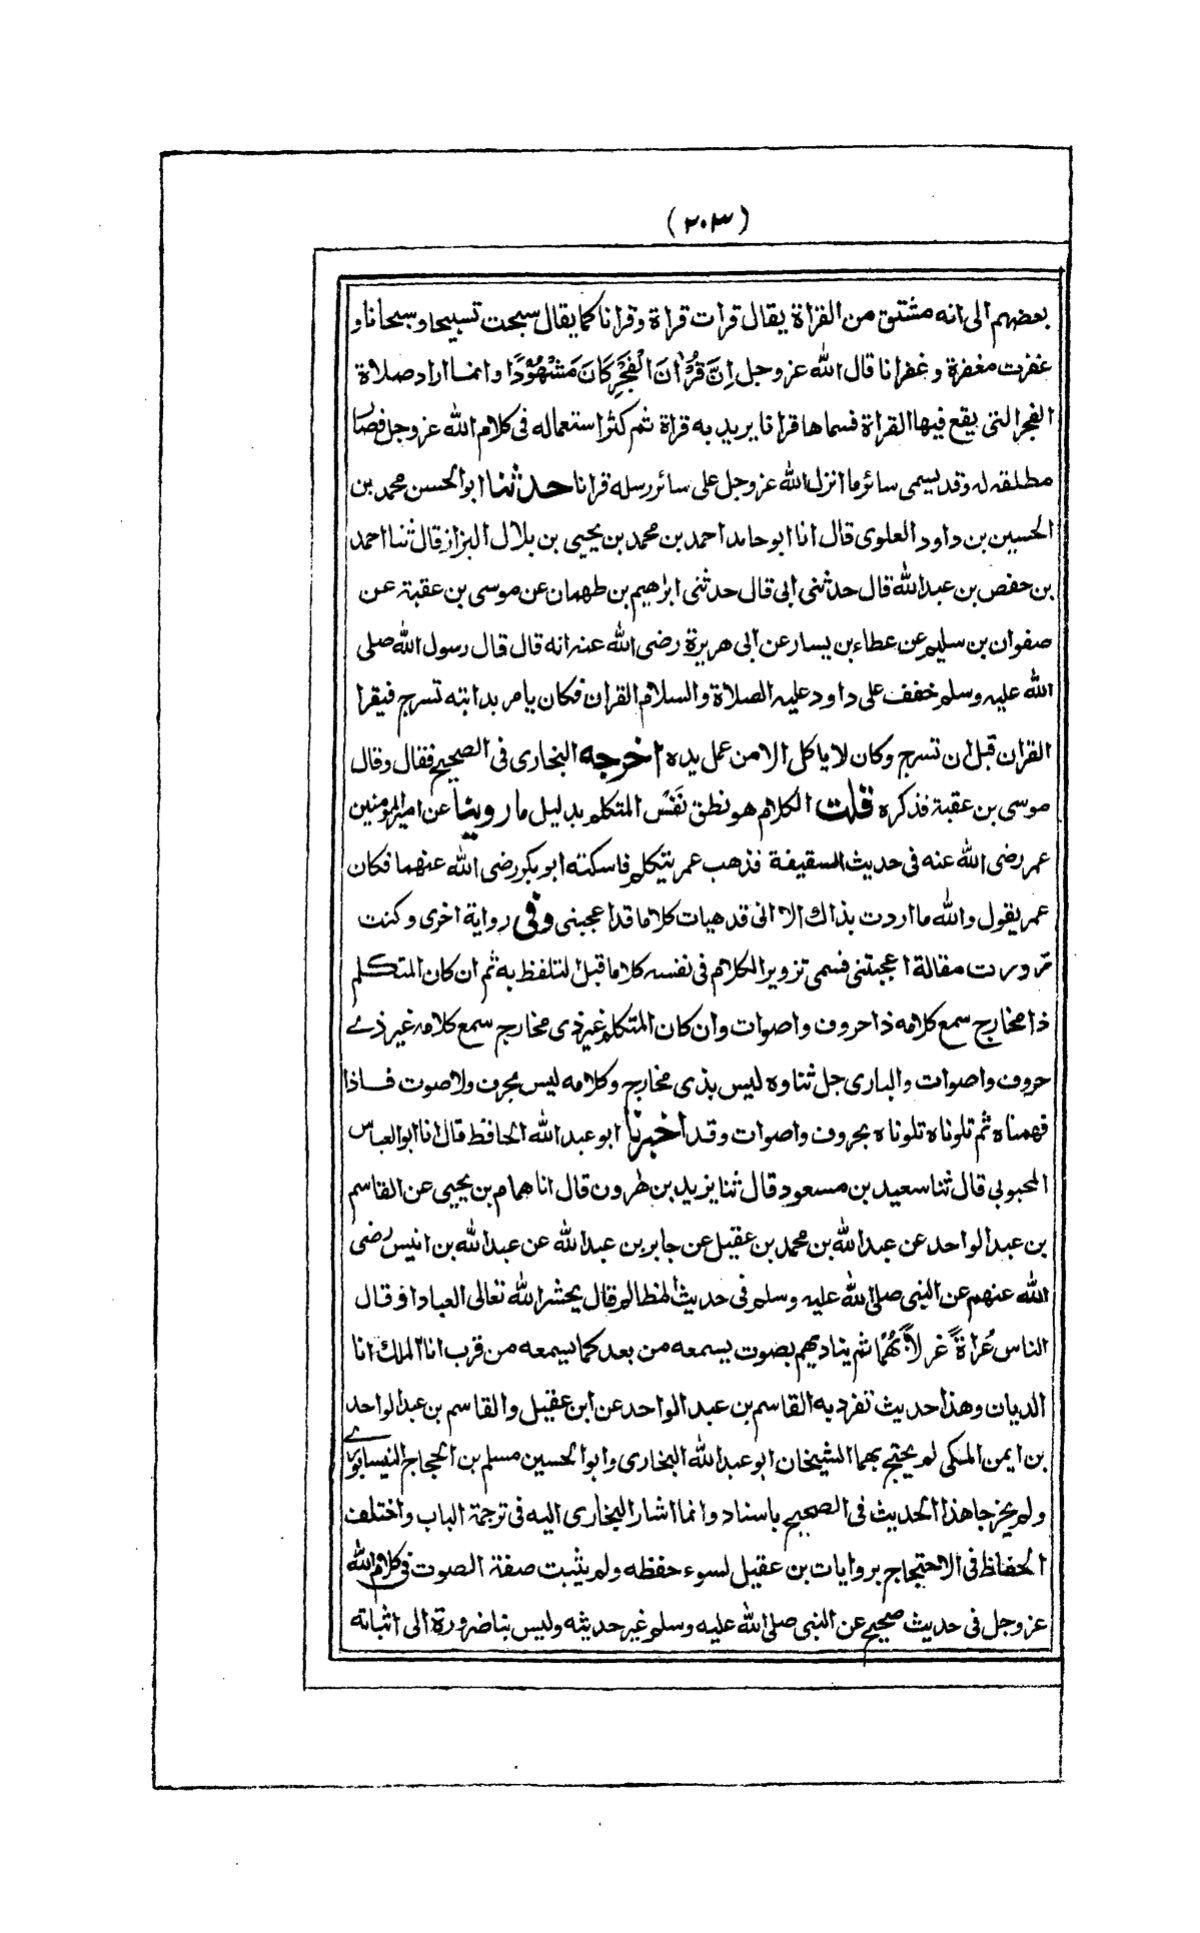 (٢٠٣)
بعضهم الى انه مشتق من القراة يقال قرات قراة وقرانا كما يقال سبحت تسبيحا وسبحانا و
غفرت مغفرة وغفرانا قال الله عز وجل اِنَّ قُرْاٰنَ الْفَجْرِ كَانَ مَشْهُوْدًا وانما اراد صلاة
الفجر التى يقع فيها القراة فسماها قرانا يريد به قراة ثم كثر استعماله فى كلام الله عز وجل فصار
مطلقه له وقد يسمى سائر ما انزل الله عز وجل على سائر رسله قرانا حدثنا ابو الحسن محمد بن
الحسين بن داود العلوى قال انا ابو حامد احمد بن محمد بن يحيى بن بلال البزاز قال ثنا احمد
بن حفص بن عبد الله قال حدثنى ابى قال حدثنى ابرٰهيم بن طهمان عن موسى بن عقبة عن
صفوان بن سليم عن عطاء بن يسار عن ابى هريرة رضى الله عنه انه قال قال رسول الله صلى
الله عليه وسلم خفف على داود عليه الصلاة والسلام القران فكان يامر بدابته تسرج فيقرا
القران قبل ان تسرج وكان لا ياكل الا من عمل يده اخرجه البخارى فى الصحيح فقال وقال
موسى بن عقبة فذكره قلت الكلام هو نطق نَفْسُ المتكلم بدليل ما روينا عن امير المومنين
عمر رضى الله عنه فى حديث السقيفة فذهب عمر يتكلم فاسكته ابو بكر رضى الله عنهما فكان
عمر يقول والله ما اردت بذاك الا انى قد هيات كلاما قد اعجبنى وفى رواية اخرى وكنت
زورت مقالة اعجبتنى فسمى تزوير الكلام فى نفسه كلاما قبل التلفظ به ثم ان كان المتكلم
ذا مخارج سمع كلامه ذا حروف واصوات وان كان المتكلم غير ذى مخارج سمع كلامه غير ذے
حروف واصوات والبارى جل ثناوه ليس بذى مخارج وكلامه ليس بحرف ولا صوت فاذا
فهمناه ثم تلوناه تلوناه بحروف واصوات وقد اخبرنا ابو عبد الله الحافظ قال انا ابو العباس
المحبوبى قال ثنا سعيد بن مسعود قال ثنا يزيد بن هٰرون قال انا همام بن يحيى عن القاسم
بن عبد الواحد عن عبد الله بن محمد بن عقيل عن جابر بن عبد الله عن عبد الله بن انيس رضى
الله عنهم عن النبى صلى الله عليه وسلم فى حديث المظالم قال يحشر الله تعالى العباد او قال
الناس عُراةً غرلًا بُهْمًا ثم يناديهم بصوت يسمعه من بعد كما يسمعه من قرب انا الملك انا
الديان وهذا حديث تفرد به القاسم بن عبد الواحد عن ابن عقيل والقاسم بن عبد الواحد
بن ايمن المكى لم يحتج بهما الشيخان ابو عبد الله البخارى وابو الحسين مسلم بن الحجاج النيسابورے
ولم يخرجا هذا الحديث فى الصحيح باسناد وانما اشار البخارى اليه فى ترجمة الباب واختلف
الحفاظ فى الاحتجاج بروايات بن عقيل لسوء حفظه ولم يثبت صفة الصوت فى كلام الله
عز وجل فى حديث صحيح عن النبى صلى الله عليه وسلم غير حديثه وليس بنا ضرورة الى اثباته